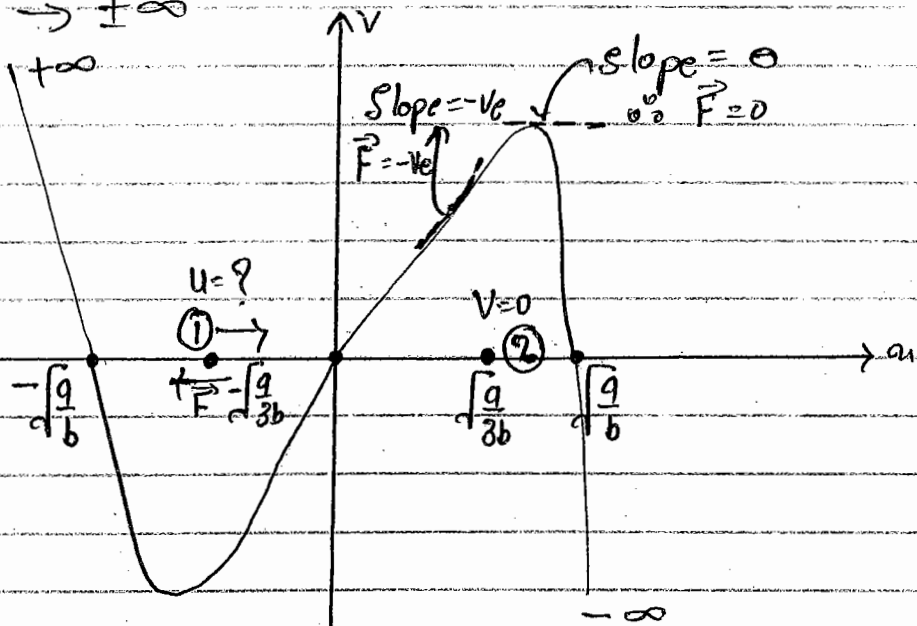 → ±∞
V
+∞
slope = 0
Slope = -ve
∴ F⃗ = 0
F⃗ = -ve
u = ?
① →
V = 0
②
x
-√(a/b)
F⃗
-√(a/3b)
√(a/3b)
√(a/b)
-∞